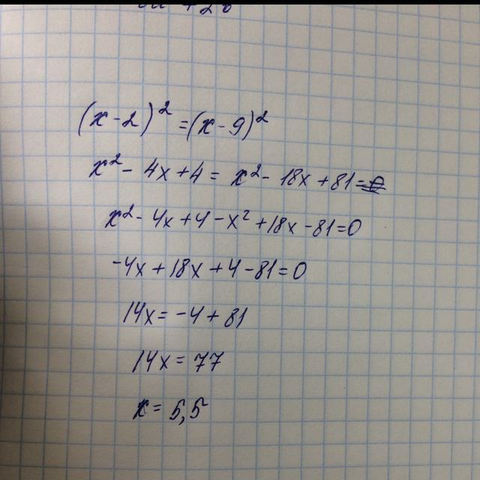 (x-2)² = (x-9)²
x² - 4x + 4 = x² - 18x + 81
x² - 4x + 4 - x² + 18x - 81 = 0
-4x + 18x + 4 - 81 = 0
14x = -4 + 81
14x = 77
x = 5,5